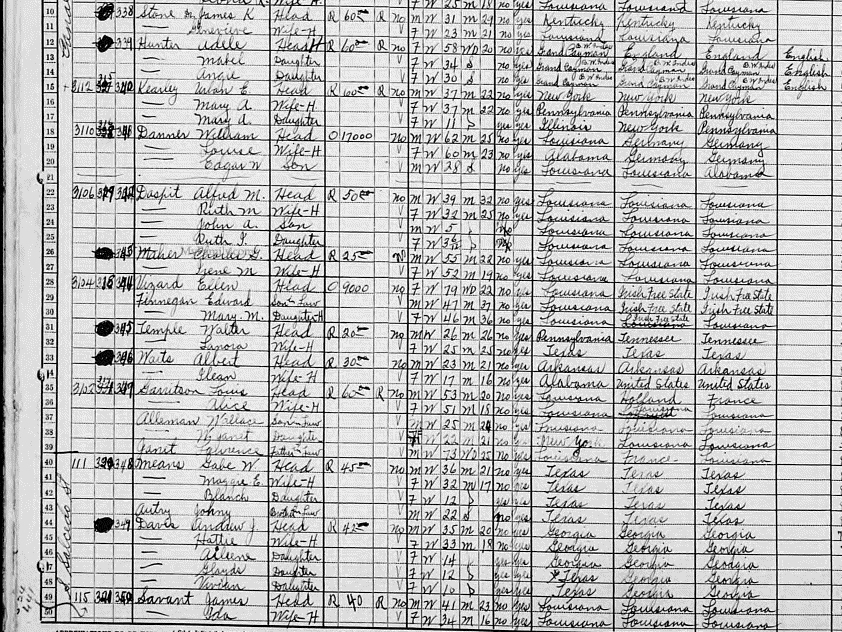 10 338 Stone James K Head R 60 R no M W 31 M 29 no yes Kentucky Kentucky Kentucky
11 Genevieve Wife-H F W 23 M 21 no yes Louisiana Louisiana Louisiana
12 339 Hunter Adele Head R 60 R no F W 58 Wd 20 no yes Grand Cayman B.W. Indies England England English
13 Mabel Daughter F W 34 S no yes Grand Cayman B.W. Indies Grand Cayman B.W. Indies Grand Cayman B.W. Indies English
14 Angie Daughter F W 30 S no yes Grand Cayman B.W. Indies Grand Cayman B.W. Indies Grand Cayman B.W. Indies English
15 3112 340 Kearley Urban E. Head R 60 R No M W 37 M 22 no yes New York New York New York
16 Mary A. Wife-H V F W 37 M 22 no yes Pennsylvania Pennsylvania Pennsylvania
17 Mary A. Daughter V F W 11 yes yes Illinois New York Pennsylvania
18 3110 341 Danner William Head O 17000 No M W 62 M 25 no yes Louisiana Germany Germany
19 Louise Wife-H V F W 60 M 23 no yes Alabama Germany Germany
20 Edgar W Son V M W 28 S no yes Louisiana Louisiana Alabama
21
22 3106 342 Daspit Alfred M. Head R 50 no M W 39 M 32 no yes Louisiana Louisiana Louisiana
23 Ruth M Wife-H V F W 32 M 25 no yes Louisiana Louisiana Louisiana
24 John A. Son V M W 5 no Louisiana Louisiana Louisiana
25 Ruth Daughter V F W no Louisiana Louisiana Louisiana
26 Maher Charles G. Head R 25 M W 55 M 22 no yes Louisiana Louisiana Louisiana
27 Irene M Wife-H V F W 52 M 19 no yes Louisiana Louisiana Louisiana
28 3104 344 Vizard Ellen Head O 9000 no F W 79 Wd 22 no yes Louisiana Irish Free State Irish Free State
29 Finnegan Edward Son-Law V M W 47 M 37 no yes Louisiana Irish Free State Irish Free State
30 Mary M. Daughter-H V F W 46 M 36 no yes Louisiana Irish Free State Louisiana
31 345 Temple Walter Head R 20 no M W 26 M 26 no yes Pennsylvania Tennessee Tennessee
32 Lanora Wife-H V F W 25 M 25 no yes Texas Texas Texas
33 346 Waits Albert Head R 30 no M W 23 M 21 no yes Arkansas Arkansas Arkansas
34 Ilean Wife-H V F W 17 M 16 no yes Alabama United States United States
35 3102 347 Garritson Louis Head R 60 R No M W 53 M 20 no yes Louisiana Holland France
36 Alice Wife-H V F W 51 M 18 no yes Louisiana Louisiana Louisiana
37 Alleman Wallace Son Law V M W 25 M no yes Louisiana Louisiana Louisiana
38 Daughter V F W 22 M 21 no New York Louisiana Louisiana
39 Father-Law V M W 73 Wd 25 no yes Louisiana France Louisiana
40 111 348 Means Gabe W Head R 45 no M W 36 M 21 no yes Texas Texas Texas
41 Maggie E. Wife-H V F W 32 M 17 no yes Texas Texas Texas
42 Blanch Daughter V F W 12 yes yes Texas Texas Texas
43 Autry Johny Brother Law V M W 22 S no yes Texas Texas Texas
44 349 Davis Andrew J. Head R 42 no M W 35 M 20 no yes Georgia Georgia Georgia
45 Hattie Wife-H V F W 33 M 18 no yes Georgia Georgia Georgia
46 Aileene Daughter V F W 14 yes yes Georgia Georgia Georgia
47 Gladys Daughter V F W 12 yes yes Texas Georgia Georgia
48 Vivian Daughter V F W 10 yes yes Texas Georgia Georgia
49 115 350 Savant James Head R 40 R no M W 41 M 23 no yes Louisiana Louisiana Louisiana
50 Ida Wife-H V F W 34 M 16 no yes Louisiana Louisiana Louisiana
S Salcedo St